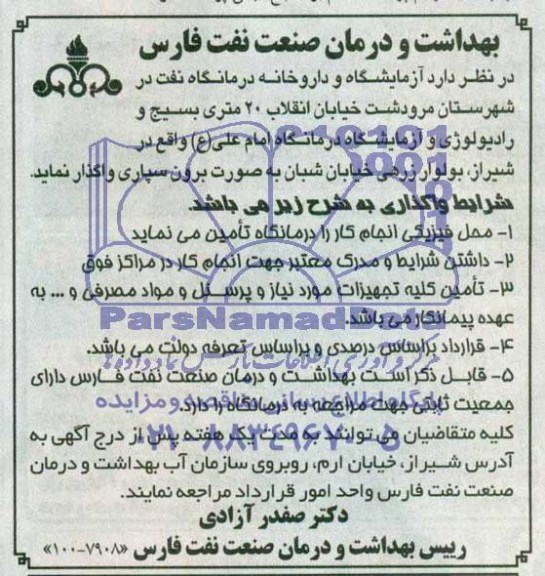 بهداشت و درمان صنعت نفت فارس
در نظر دارد آزمایشگاه و داروخانه درمانگاه نفت در
شهرستان مرودشت خیابان انقلاب ۲۰ متری بسیج و
رادیولوژی و آزمایشگاه درمانگاه امام علی(ع) واقع در
شیراز، بولوار زرهی خیابان شبان به صورت برون سپاری واگذار نماید.
شرایط واگذاری به شرح زیر می باشد
۱- محل فیزیکی انجام کار را درمانگاه تأمین می نماید
۲- داشتن شرایط و مدرک معتبر جهت انجام کار در مراکز فوق
۳- تأمین کلیه تجهیزات مورد نیاز و پرسنل و مواد مصرفی و ... به
عهده پیمانکار می باشد.
ParsNamadData
۴- قرارداد براساس درصدی و براساس تعرفه دولت می باشد.
مرکز فرآوری اطلاعات پارس نماد داده ها
۵- قابل ذکر است بهداشت و درمان صنعت نفت فارس دارای
جمعیت ثابتی جهت مراجعه به درمانگاه را دارد.
پایگاه اطلاع رسانی مناقصه و مزایده
کلیه متقاضیان می توانند به مدت یک هفته پس از درج آگهی به
۰۲۱-۸۸۳۴۹۶۷۰-۵
آدرس شیراز، خیابان ارم، روبروی سازمان آب بهداشت و درمان
صنعت نفت فارس واحد امور قرارداد مراجعه نمایند.
دکتر صفدر آزادی
رییس بهداشت و درمان صنعت نفت فارس «۷۹۰۸-۱۰۰»